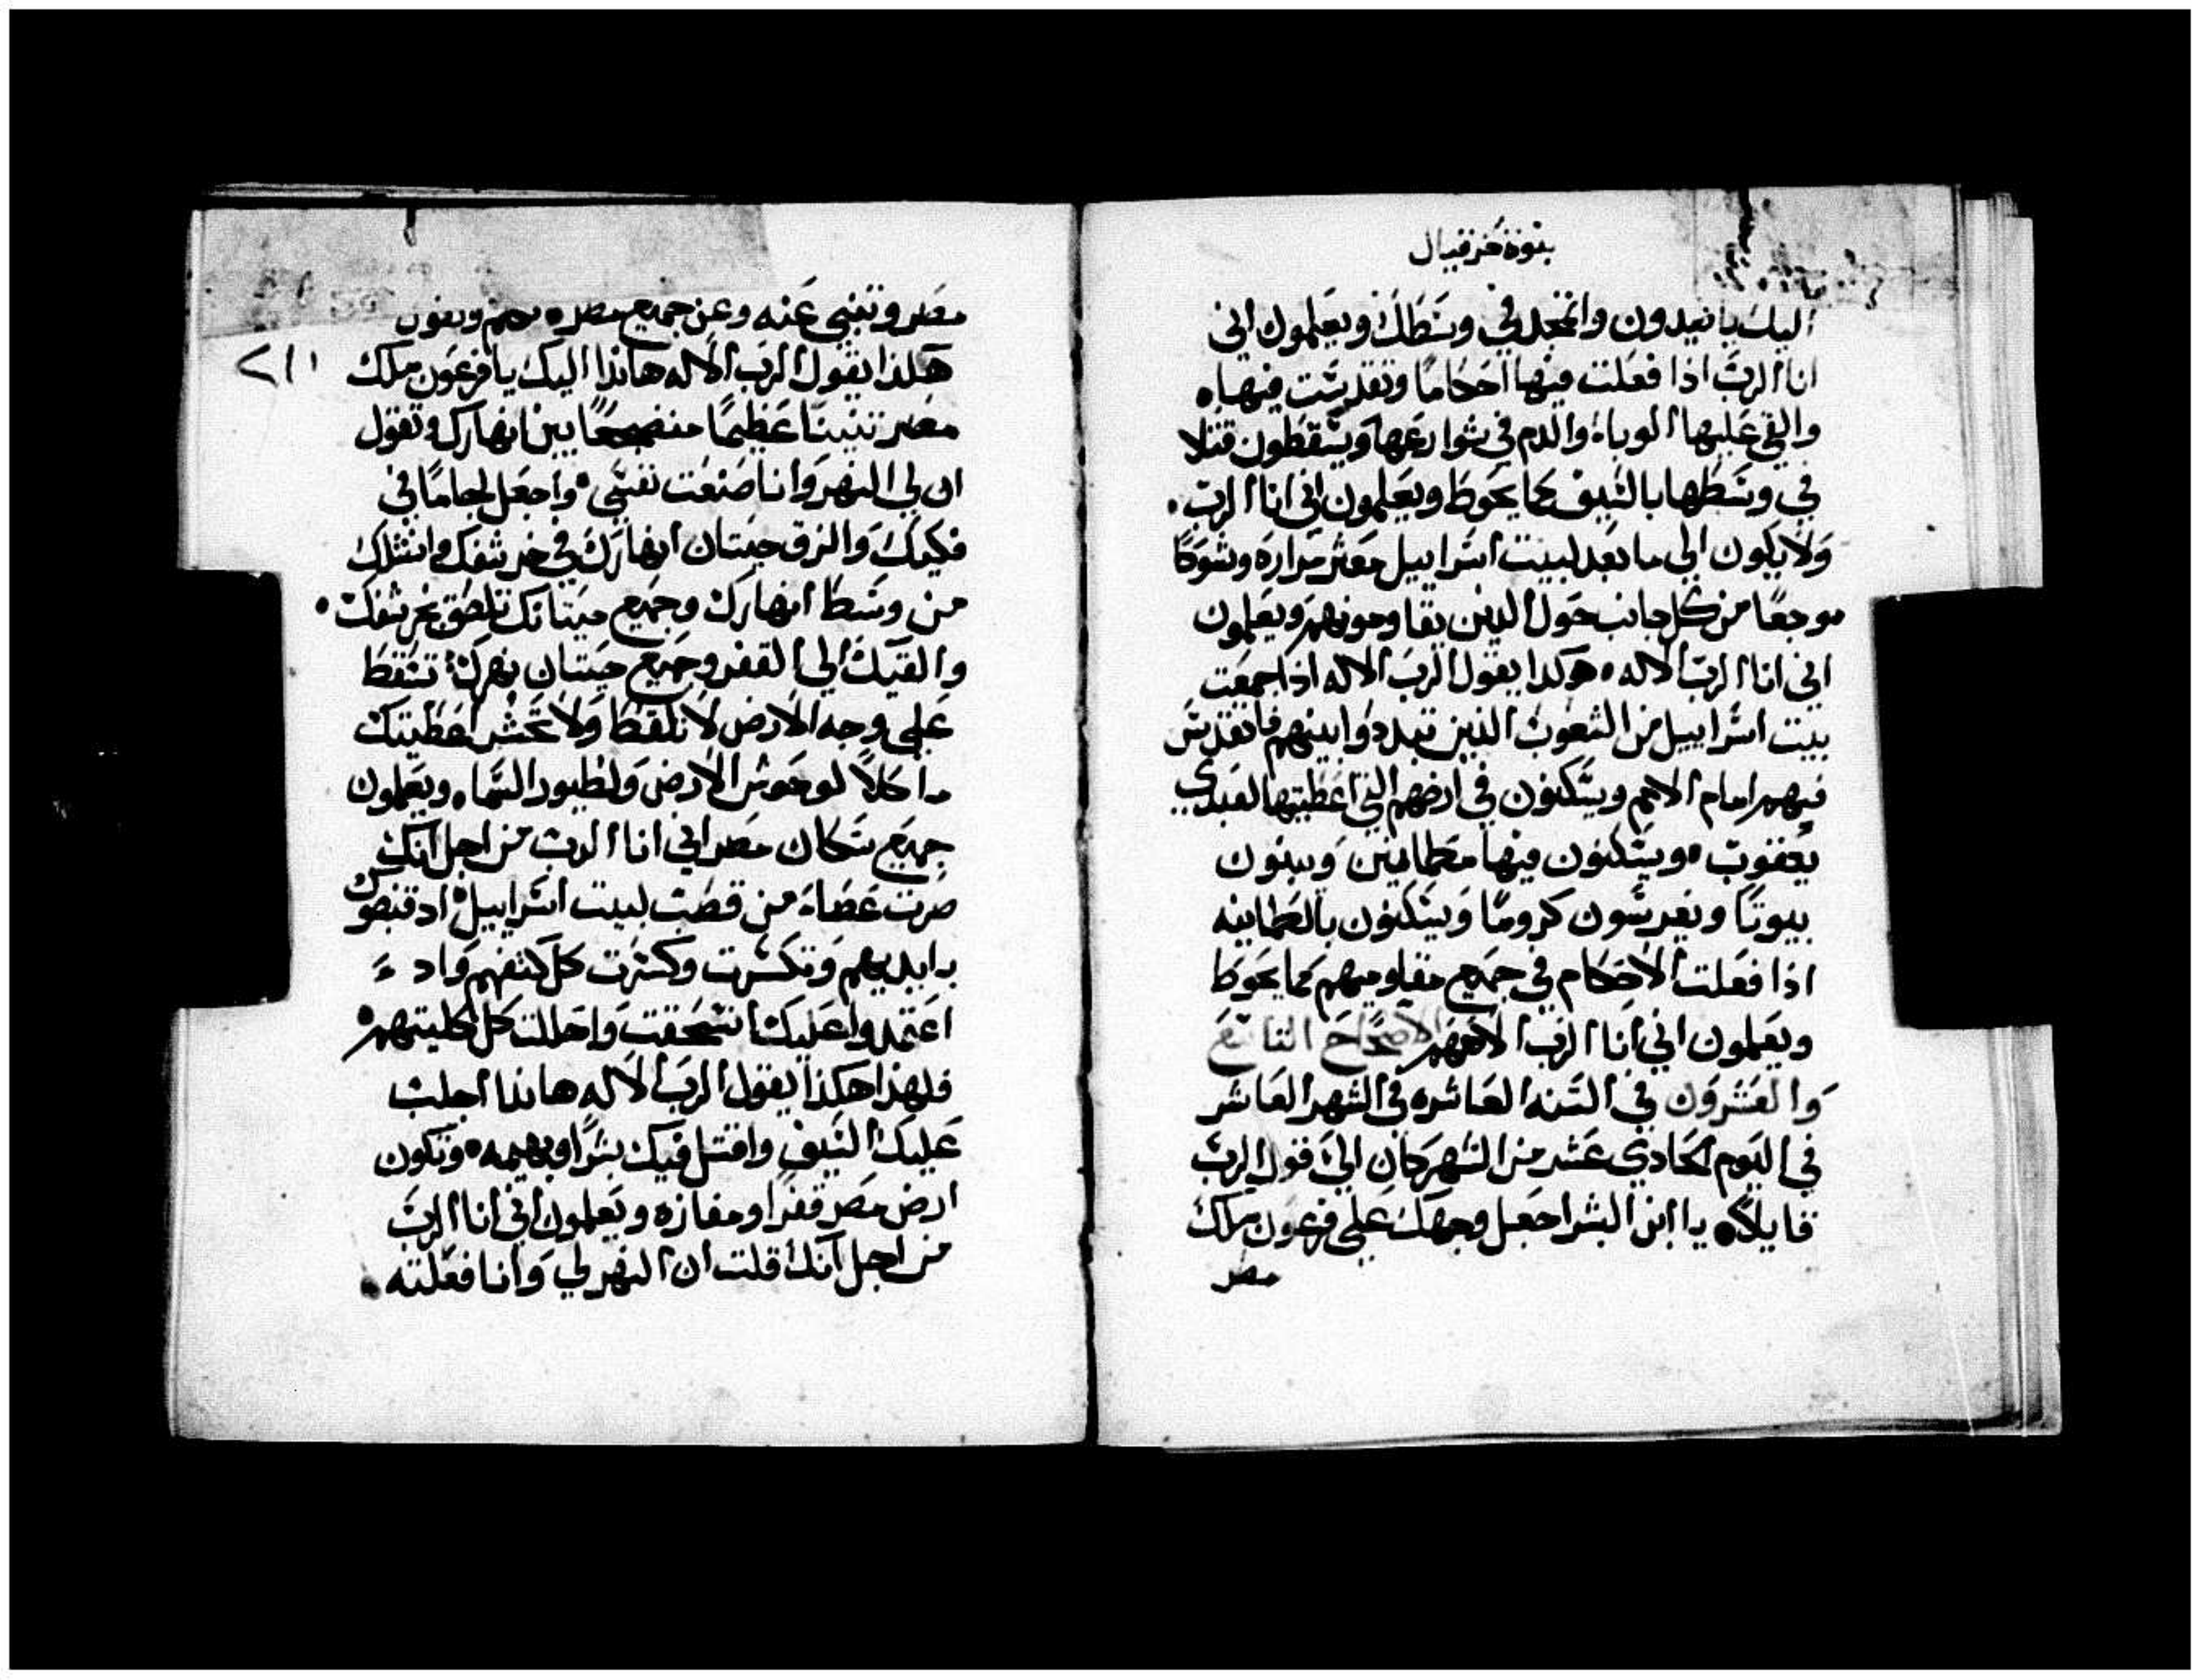 بنوة حزقيال
اليك يا صيدون واتمجد في وسطك ويعلمون اني
انا الرب اذا فعلت فيها احكامًا وتقدست فيها.
والقي عليها الوباء والدم في شوارعها ويسقطون قتلا
في وسطها بالسيف بما يحوط ويعلمون اني انا الرب.
ولا يكون الى ما بعد لبيت اسراييل معثر مراره وشوكًا
موجعًا من كل جانب حول الدين يقاومونهم ويعلمون
اني انا الرب الاله. هكدا يقول الرب الاله اذا جمعت
بيت اسراييل من الشعوب الذين تبددوا بينهم فاتقدس
فيهم امام الامم ويسكنون في ارضهم التي اعطيتها لعبدي
يعقوب. ويسكنون فيها مطمانين ويبنون
بيوتًا ويغرسون كرومًا ويسكنون بالطمانينه
اذا فعلت الاحكام في جميع مقاوميهم بما يحوط
ويعلمون اني انا الرب الاههم الاصحاح التاسع
والعشرون في السنه العاشره في الشهر العاشر
في اليوم الحادي عشر من الشهر كان الي قول الرب
قايلًا. يا ابن البشر اجعل وجهك على فرعون ملك
مصر
مصر وتنبى عنه وعن جميع مصر.
هكذا يقول الرب الاله هانذا اليك يا فرعون ملك
مصر تنينًا عظيمًا منضجعًا بين انهارك وتقول
ان لي النهر وانا صنعت نفسي. واجعل لجامًا في
فكيك والزق حيتان انهارك في خرشفك وانشلك
من وسط انهارك وجميع حيتانك تلصق بخرشفك.
والقيك الي القفر وجميع حيتان نهرك. تسقط
علي وجه الارض لا تلقط ولا تحشر اعطيتك
ماكلًا لوحوش الارض ولطيور السما. ويعلمون
جميع سكان مصر اني انا الرب من اجل انك
صرت عصاه من قصب لبيت اسراييل. اد قبضوك
بايديهم وتكسرت وكسرت كل كتفهم واد
اعتمدوا عليك انسحقت واحللت كل كليتهم.
فلهذا هكذا يقول الرب الاله هانذا اجلب
عليك السيف واقتل فيك بشرًا وبهيمه. وتكون
ارض مصر قفرًا ومفازه ويعلمون اني انا الرب
من اجل انك قلت ان النهر لي وانا فعلته.